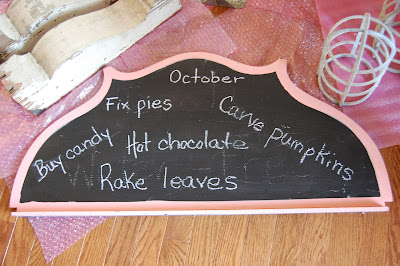 October
Fix pies
Carve pumpkins
Buy candy
Hot chocolate
Rake leaves